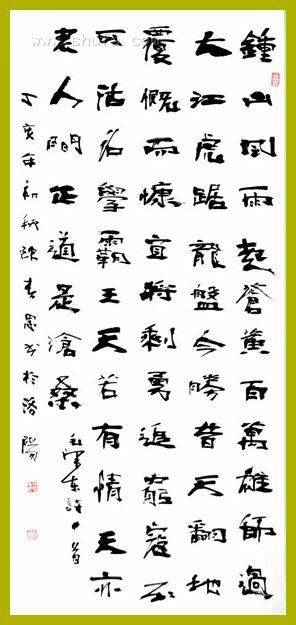 鍾山風雨起蒼黃百萬雄師過
大江虎踞龍盤今勝昔天翻地
覆慨而慷宜將剩勇追窮寇不
可沽名學霸王天若有情天亦
老人間正道是滄桑
毛澤东詩首
丁亥年初秋书於洛陽